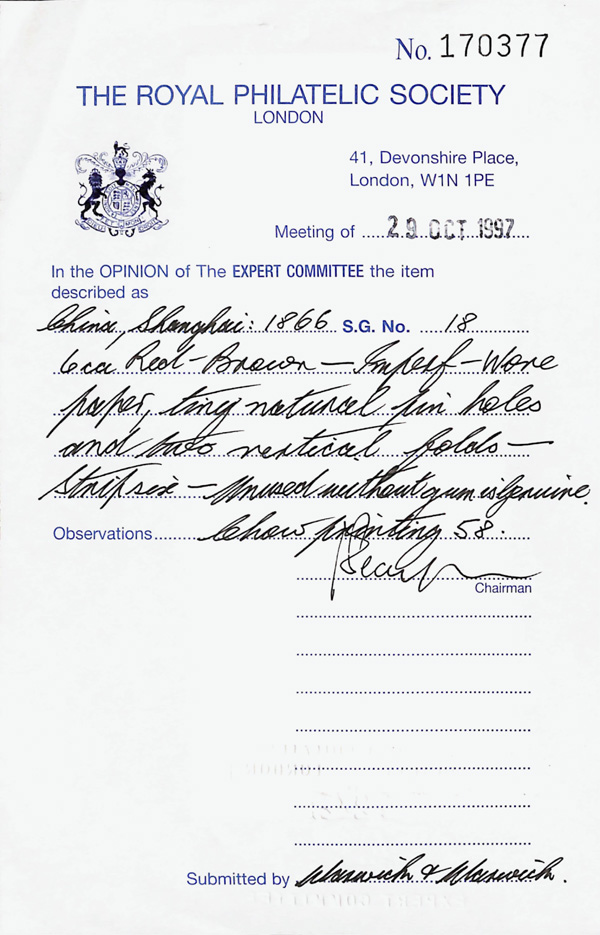 No. 170377
THE ROYAL PHILATELIC SOCIETY
LONDON
41, Devonshire Place,
London, W1N 1PE
Meeting of 29 OCT 1997
In the OPINION of The EXPERT COMMITTEE the item
described as
China, Shanghai: 1866 S.G. No. 18
6ca Red-Brown - Imperf - Wove
paper, tiny natural pin holes
and two vertical folds -
Strip six - Unused without gum is Genuine.
Observations Chow printing 58.
Chairman
Submitted by Warwick & Warwick.